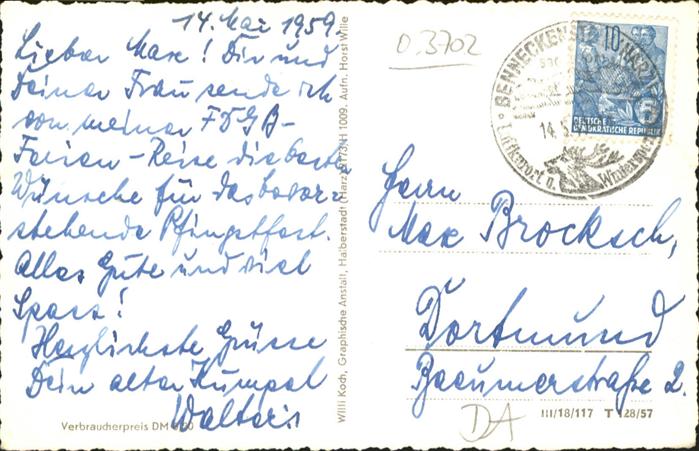 14. Mai 1959.
Lieber Max! Dir und
Deiner Frau sende ich
von meiner FDGB-
Ferien-Reise die besten
Wünsche für das bevor-
stehende Pfingstfest.
Alles Gute und viel
Spass!
Herzlichste Grüsse
Dein alter Kumpel
Walter
Verbraucherpreis DM
Willi Koch, Graphische Anstalt, Halberstadt (Harz) R 173/H 1009. Aufn. Horst Wille
0.3702
BENNECKENSTEIN (HARZ)
14.5.
Luftkurort u. Wintersport
10
5
DEUTSCHE
DEMOKRATISCHE REPUBLIK
Herrn
Max Brocksch,
Dortmund
Baeumerstraße 2.
DA
III/18/117 T 128/57